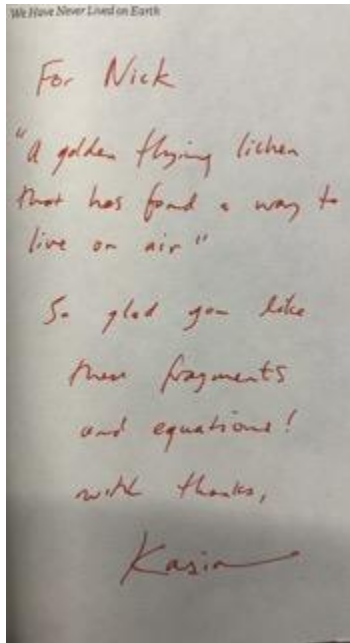 We Have Never Lived on Earth
For Nick
"A golden flying lichen
that has found a way to
live on air"
So glad you like
these fragments
and equations!
with thanks,
Kasia